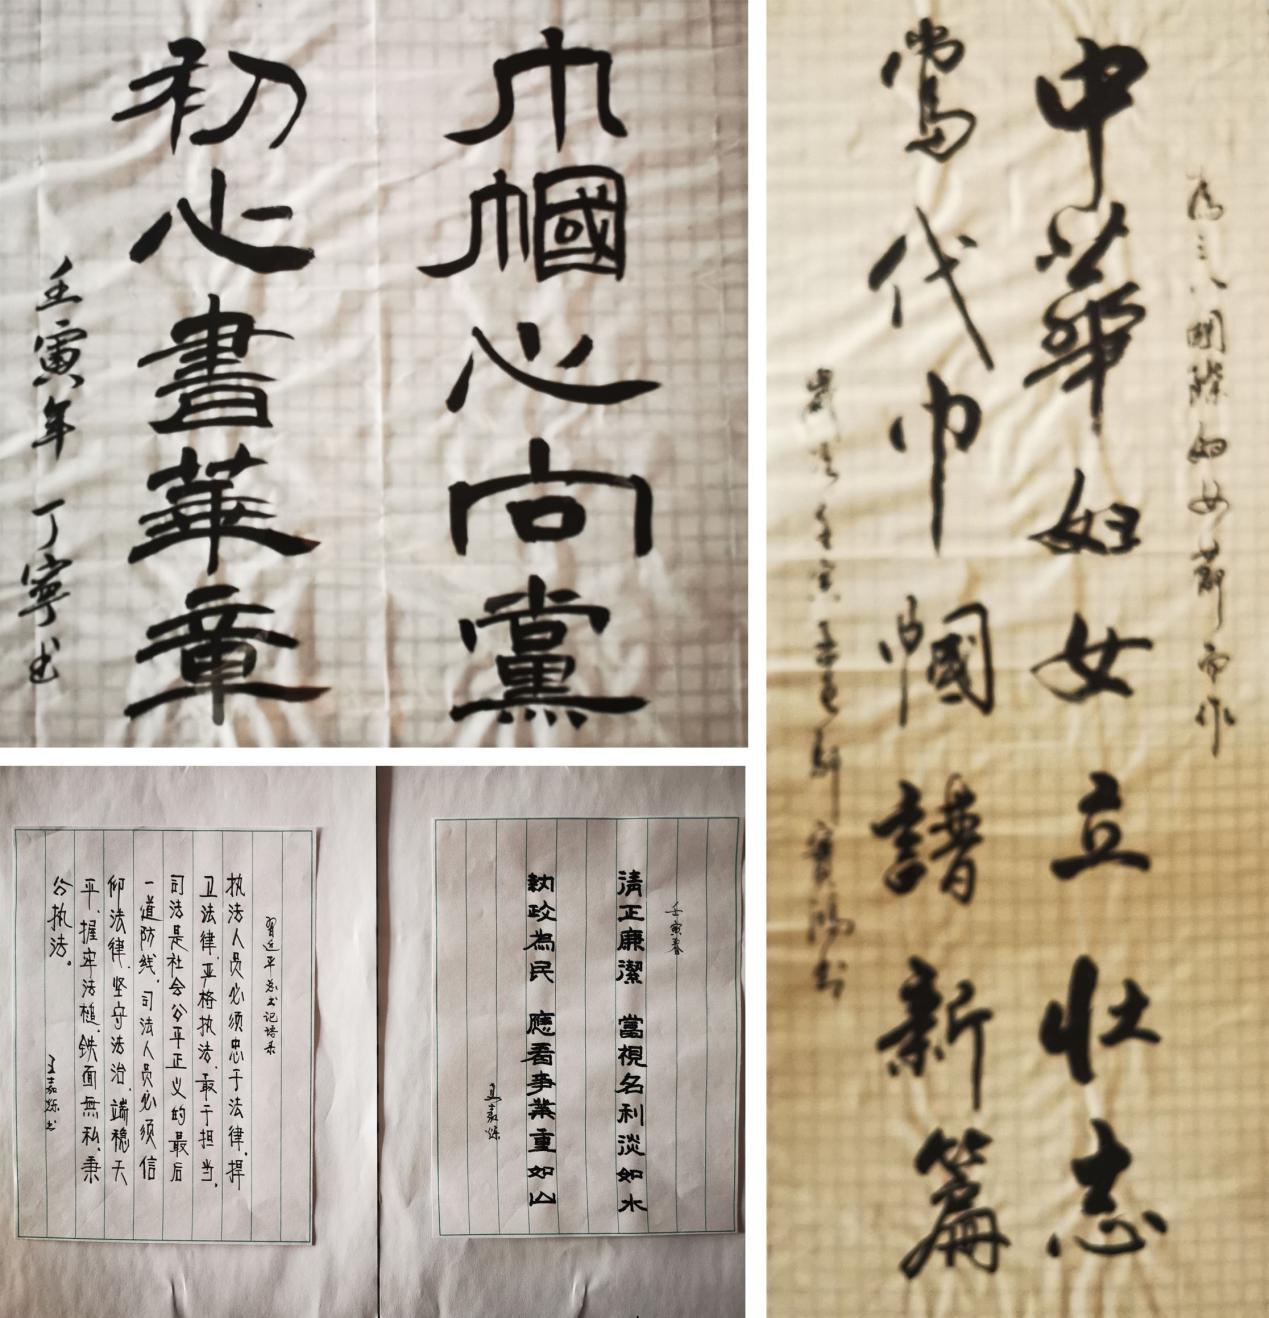 巾幗心向黨
初心書華章
壬寅年 丁寧书
為三八國際妇女節而作
中華妇女立壮志
當代巾幗譜新篇
歲次壬寅
習近平总书记语录
执法人员必须忠于法律,捍
卫法律,严格执法,敢于担当,
司法是社会公平正义的最后
一道防线,司法人员必须信
仰法律,坚守法治,端稳天
平,握牢法槌,铁面無私,秉
公执法。
王嘉烁书
壬寅春
清正廉潔 當視名利淡如水
執政為民 應看事業重如山
嘉烁